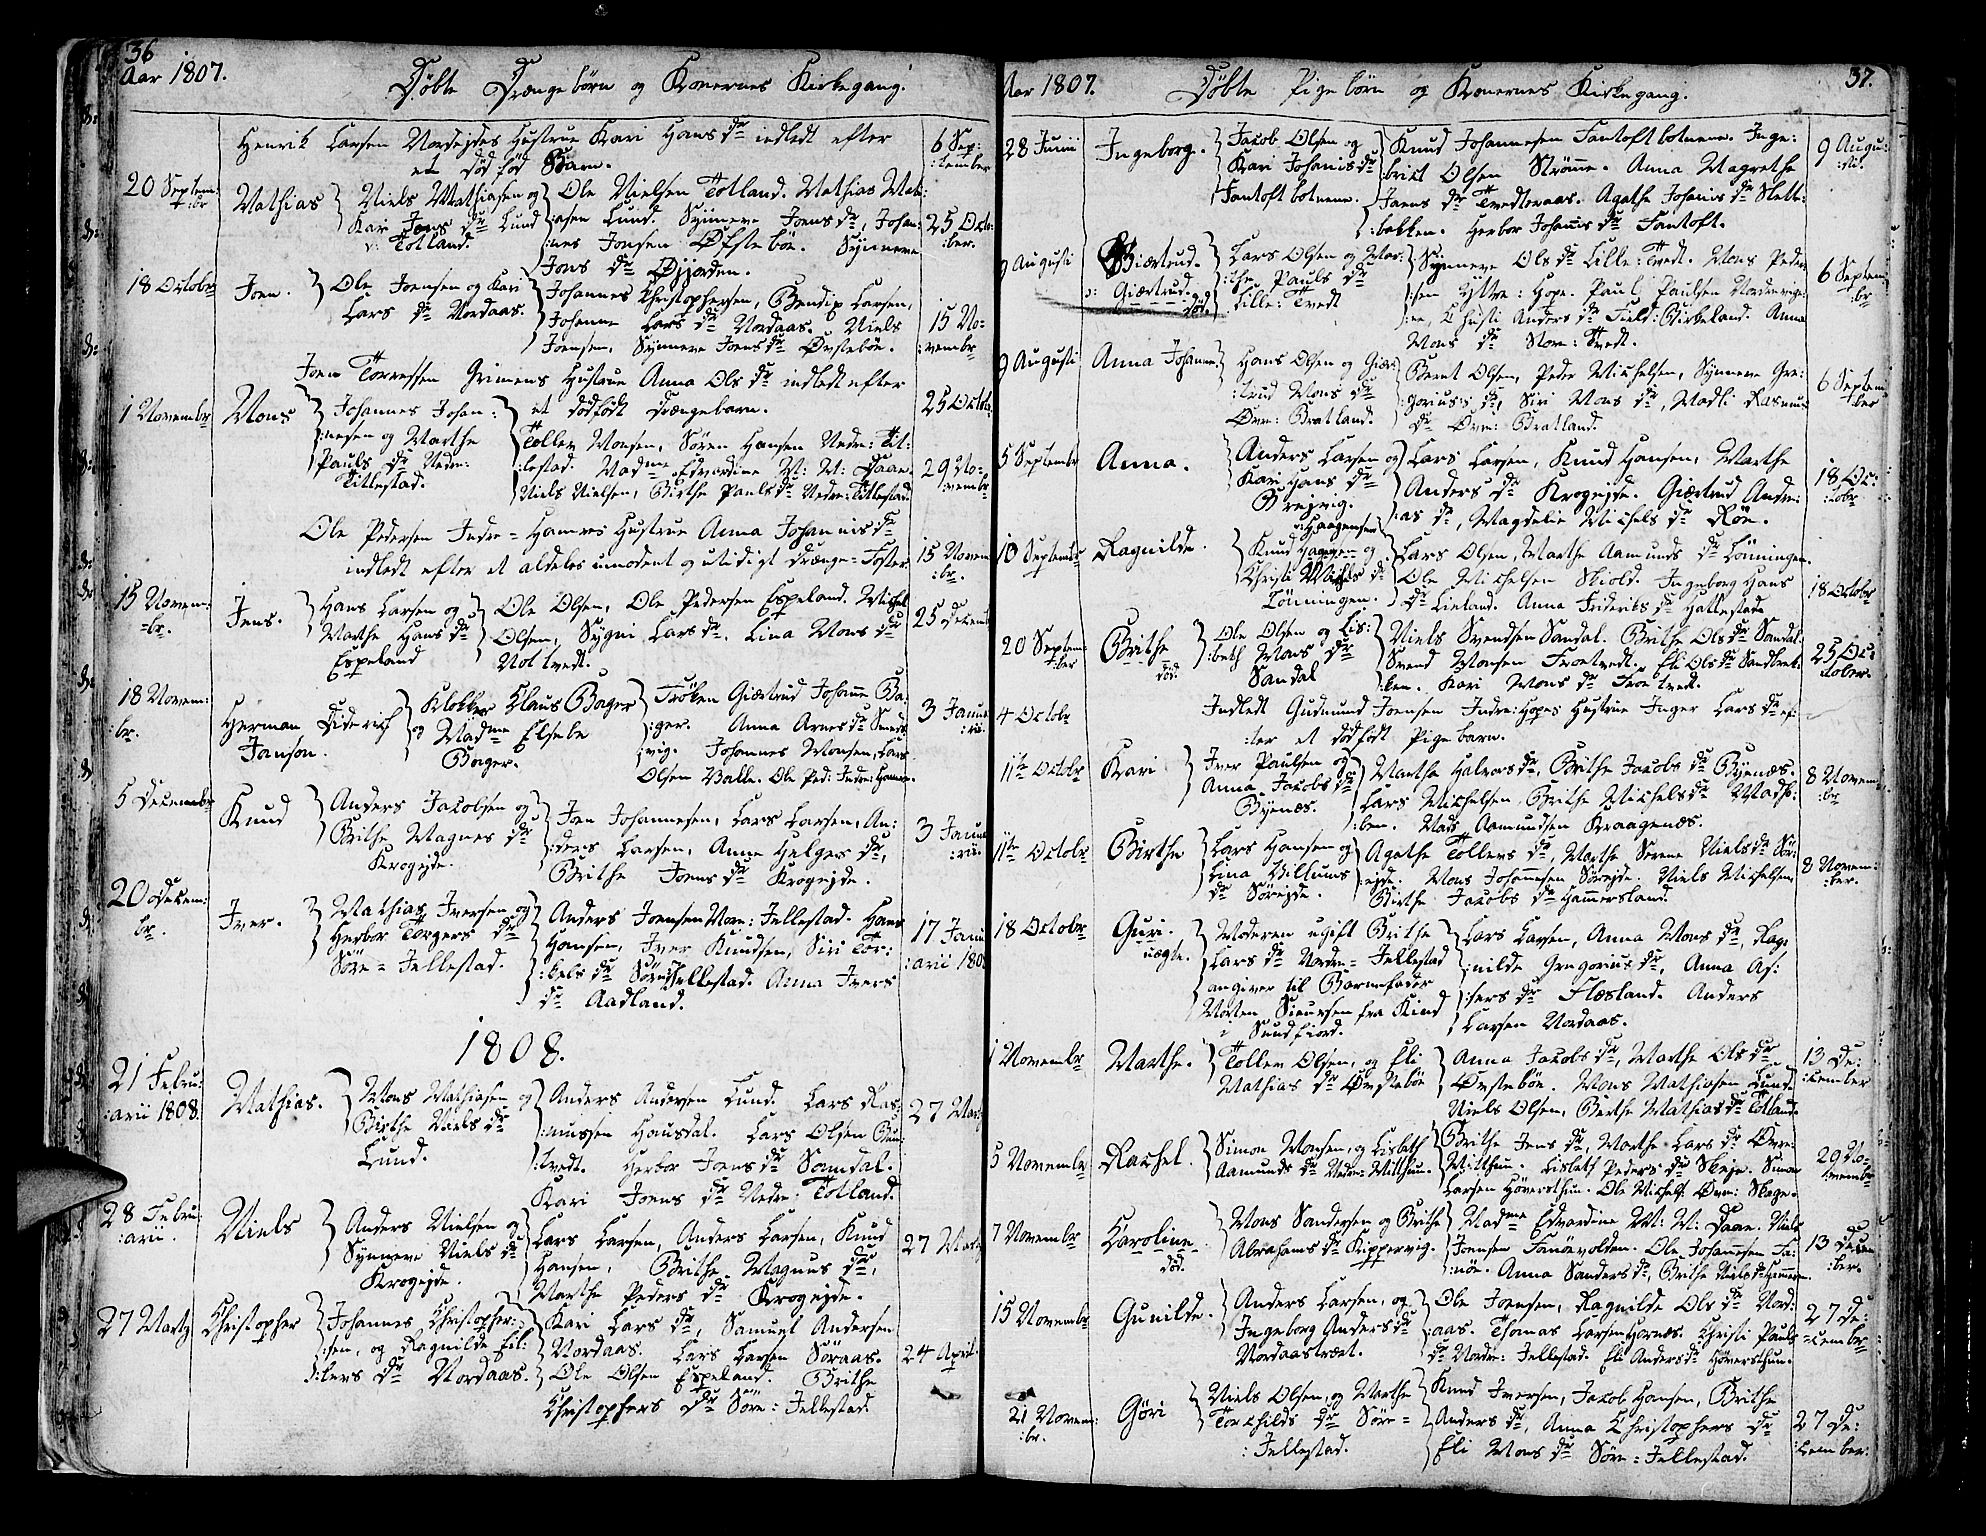 36
Aar 1807.
Døbte Drængebørn og Konernes Kirkegang.
Henrik Larsen Nordejdes Hustrue Kari Hans dr indledt efter
et død fød Barn.
6 Sep:
:tember
20 Septem:
:br
Mathias
Niels Mathiasen og
Kari Jons dr Lund
Totland.
Ole Nielsen Totland. Mathias Mat:
:iasen Lund. Synneve Joens dr, Johan:
:nes Jonsen Øfstebøe. Synneve
Jons dr Øyjorden.
25 Octo:
:ber.
18 Octobr
Joen.
Ole Joensen og Kari
Lars dr Nordaas.
Johannes Christophersen, Bendix Larsen,
Johanne Lars dr Nordaas. Niels
Joensen, Synneve Joens dr Øvstebøe.
15 No:
:vembr
Joen Torressen Grimens Hustrue Anna Ols dr indledt efter
et dødfødt Drængebarn.
25 Octob.
1 Novembr
Mons
Johannes Johan:
:nesen og Marthe
Pauls dr Nedre:
Tittlestad.
Tollev Monsen, Søren Hansen Nedre: Tit:
:lestad. Madme Edvardine M: M: Daae.
Niels Nielsen, Birthe Pauls dr Nedre: Titlestad.
29 No:
:vembr
Ole Pedersen Indre-Hammers Hustrue Anna Johannis dr
indledt efter et aldeles umodent og utidigt Drænge-Foster
15 Novem
:br.
15 Novem:
:br.
Jens.
Hans Larsen og
Marthe Hans dr
Espeland
Ole Olsen, Ole Pedersen Espeland. Michel
Olsen, Sygni Lars dr. Lina Mons dr
Noltvedt.
25 Decemb
18 Novem:
:br.
Herman Diderich
Janson.
Klokker Claus Bager
og Madme Elsebe
Bager.
Frøken Giærtrud Johanne Ba:
:ger. Anna Arnes dr Smeds:
vig. Johannes Monsen, Lars
Olsen Balle. Ole Ped: Indre: Hammer.
3 Janu
:rii.
5 Decembr
Knud
Anders Jacobsen og
Brithe Magnes dr
Krogejde.
Joen Johannesen, Lars Larsen, An:
:ders Larsen, Anne Helges dr,
Brithe Joens dr Krogejde.
3 Janu
:rii.
20 Decem:
br.
Iver.
Mathias Iversen og
Herbor Torgers dr
Søre-Jellestad.
Anders Joensen Nore: Jellestad. Hans
Hansen, Iver Knudsen, Siri Tor:
:kels dr Søre Jellestad. Anna Ivers
dr Aadland.
17 Janu
:arii 180
1808.
21 Febru:
:arii 1808.
Mathias.
Mons Mathiasen og
Birthe Niels dr
Lund.
Anders Andersen Lund. Lars Ras:
:mussen Hausdal. Lars Olsen
:tvedt. Herbor Joens dr Samdal.
Kari Joens dr Nedre: Totland.
27 Marty
28 Febru:
:arii.
Niels
Anders Nielsen og
Synneve Niels dr
Krogejde.
Lars Larsen, Anders Larsen, Knud
Hansen, Brithe Magnus dr,
Marthe Peders dr Krogejde.
27 Marty
27 Marty
Christopher
Johannes Christopher:
:sen, og Ragnilde Eil:
:kers dr Nordaas.
Kari Lars dr, Samuel Andersen
Nordaas. Lars Larsen Søraas.
Ole Olsen Espeland. Brithe
Christophers dr Søre: Jellestad.
24 April
37.
Aar 1807.
Døbte Pigebørn og Konernes Kirkegang.
28 Junii
Ingeborg.
Jacob Olsen og
Kari Johannis dr
Fantoft botnene.
Knud Johannesen Fantoft botnene. Inge:
:brict Olsen Strømme. Anna Magrethe
Joens dr Tvedteraas. Agathe Johannis dr Slette:
:bakken. Herbor Johannis dr Fantoft.
9 Augu:
:sti.
9 Augusti
Giærtrud.
ɔ: Giærtrud.
død.
Lars Olsen og Mar:
:the Pauls dr
Lille: Tvedt
Synneve Ols dr Lille: Tvedt. Mons Peder
:sen Yttre: Hope. Paul Paulsen Nordrevige:
:en, Christi Anders dr Field: Birkeland. Anna
Mons dr Store: Tvedt.
6 Septem
:br
9 Augusti
Anna Johanne
Hans Olsen og Giær:
:trud Mons dr
Øvre: Bratland.
Bernt Olsen, Peder Michelsen, Synneve Gre:
:goriusis dr, Siri Mons dr, Madli Rasmus
dr Øvre: Bratland.
6 Septem
:ber
5 Septembr
Anna.
Anders Larsen og
Kari Hans dr
Breivig.
Lars Larsen, Knud Hansen, Marthe
Anders dr Krogejde. Giærtrud Andre:
:as dr, Magdelie Michels dr Røe.
18 Oc:
:tobr.
10 Septembr
Ragnilde.
Haagensen
Knud Haagen og
Christi Michels dr
Lønningen.
Lars Olsen, Marthe Aamunds dr Lønningen.
Ole Michelsen Skiold. Ingeborg Hans
dr Lieland. Anna Friderichs dr Hattestad.
18 Octobr
20 Septem
:ber
Brithe
død.
Ole Olsen og Lis:
:beth Mons dr
Sandal
Niels Svendsen Sandal. Brithe Ols dr Sandal.
Svend Monsen Troetvedt. Eli Ols dr Sandbrek:
:ken. Kari Mons dr Troetvedt.
25 Oc:
tober.
4 Octobr
Indledt Gudmund Joensen Indre: Hopes Hustrue Inger Lars dr ef:
:ter et dødfødt Pigebarn.
11te Octobr
Kari
Iver Paulsen og
Anna Jacobs dr
Byenæs.
Marthe Halvors dr, Brithe Jacobs dr Byenæs.
Lars Michelsen, Brithe Michels dr Madh:
:ben. Mads Aamundsen Kraagenæs.
8 Novem
:br
11te Octobr
Birthe
Lars Hansen og
Lina Villums
dr Sørejde.
Agathe Tollevs dr, Marthe Serene Niels dr Sør:
:ejde. Mons Johannesen Sørejde. Niels Michelsen
Birthe Jacobs dr Hammersland.
8 Novem:
:ber.
18 October
Guri.
uægte.
Moderen ugift Brithe
Lars dr Nedre-Jellestad
angiver til Barnefader
Morten Siversen fra Kind
i Sundfiord.
Lars Larsen, Anna Mons dr, Rag:
:nilde Gregorius dr, Anna As:
:sers dr Flæsland. Anders
Larsen Nordaas.
1 Novembr
Marthe.
Tollev Olsen, og Eli
Mathias dr Øvstebøe
Anna Jacobs dr, Marthe Ols dr
Øvstebøe. Mons Mathiasen Lund.
Niels Olsen, Berthe Mathias dr Totland.
13 De:
:cember
5 Novembr
Rachel.
Simon Monsen, og Lisbeth
Aamunds dr Nedre-Mitthun.
Brithe Jens dr, Marthe Lars dr Øvre:
Mitthun. Lisbeth Peders dr Skeje. Simon
Larsen Høversthun. Ole Michels: Øvre: Skege.
29 No:
:vembr
7 Novembr
Karoline.
død.
Mons Sandersen og Brithe
Abrahams dr Kippervig.
Madme Edvardine M: M: Daae. Niels
Joensen Fanøevolden. Ole Johannesen Fa:
:nøe. Anna Sanders dr, Brithe Niels dr Hammer.
13 Decem
:ber.
15 Novembr
Gunilde.
Anders Larsen, og
Ingeborg Anders dr
Nordaastræet.
Ole Joensen, Ragnilde Ols dr Nord:
:aas. Thomas Larsen Hornæs. Christi Pauls
dr Nordre: Jellestad. Eli Anders dr Høversthun.
27 De:
:cembr
21 Novem:
:br.
Gøri
Niels Olsen, og Marthe
Torchilds dr Søre-
:Jellestad.
Knud Iversen, Jacob Hansen, Brithe
Anders dr, Anna Christophers dr
Eli Mons dr Søre-Jellestad.
27 De:
:cember.